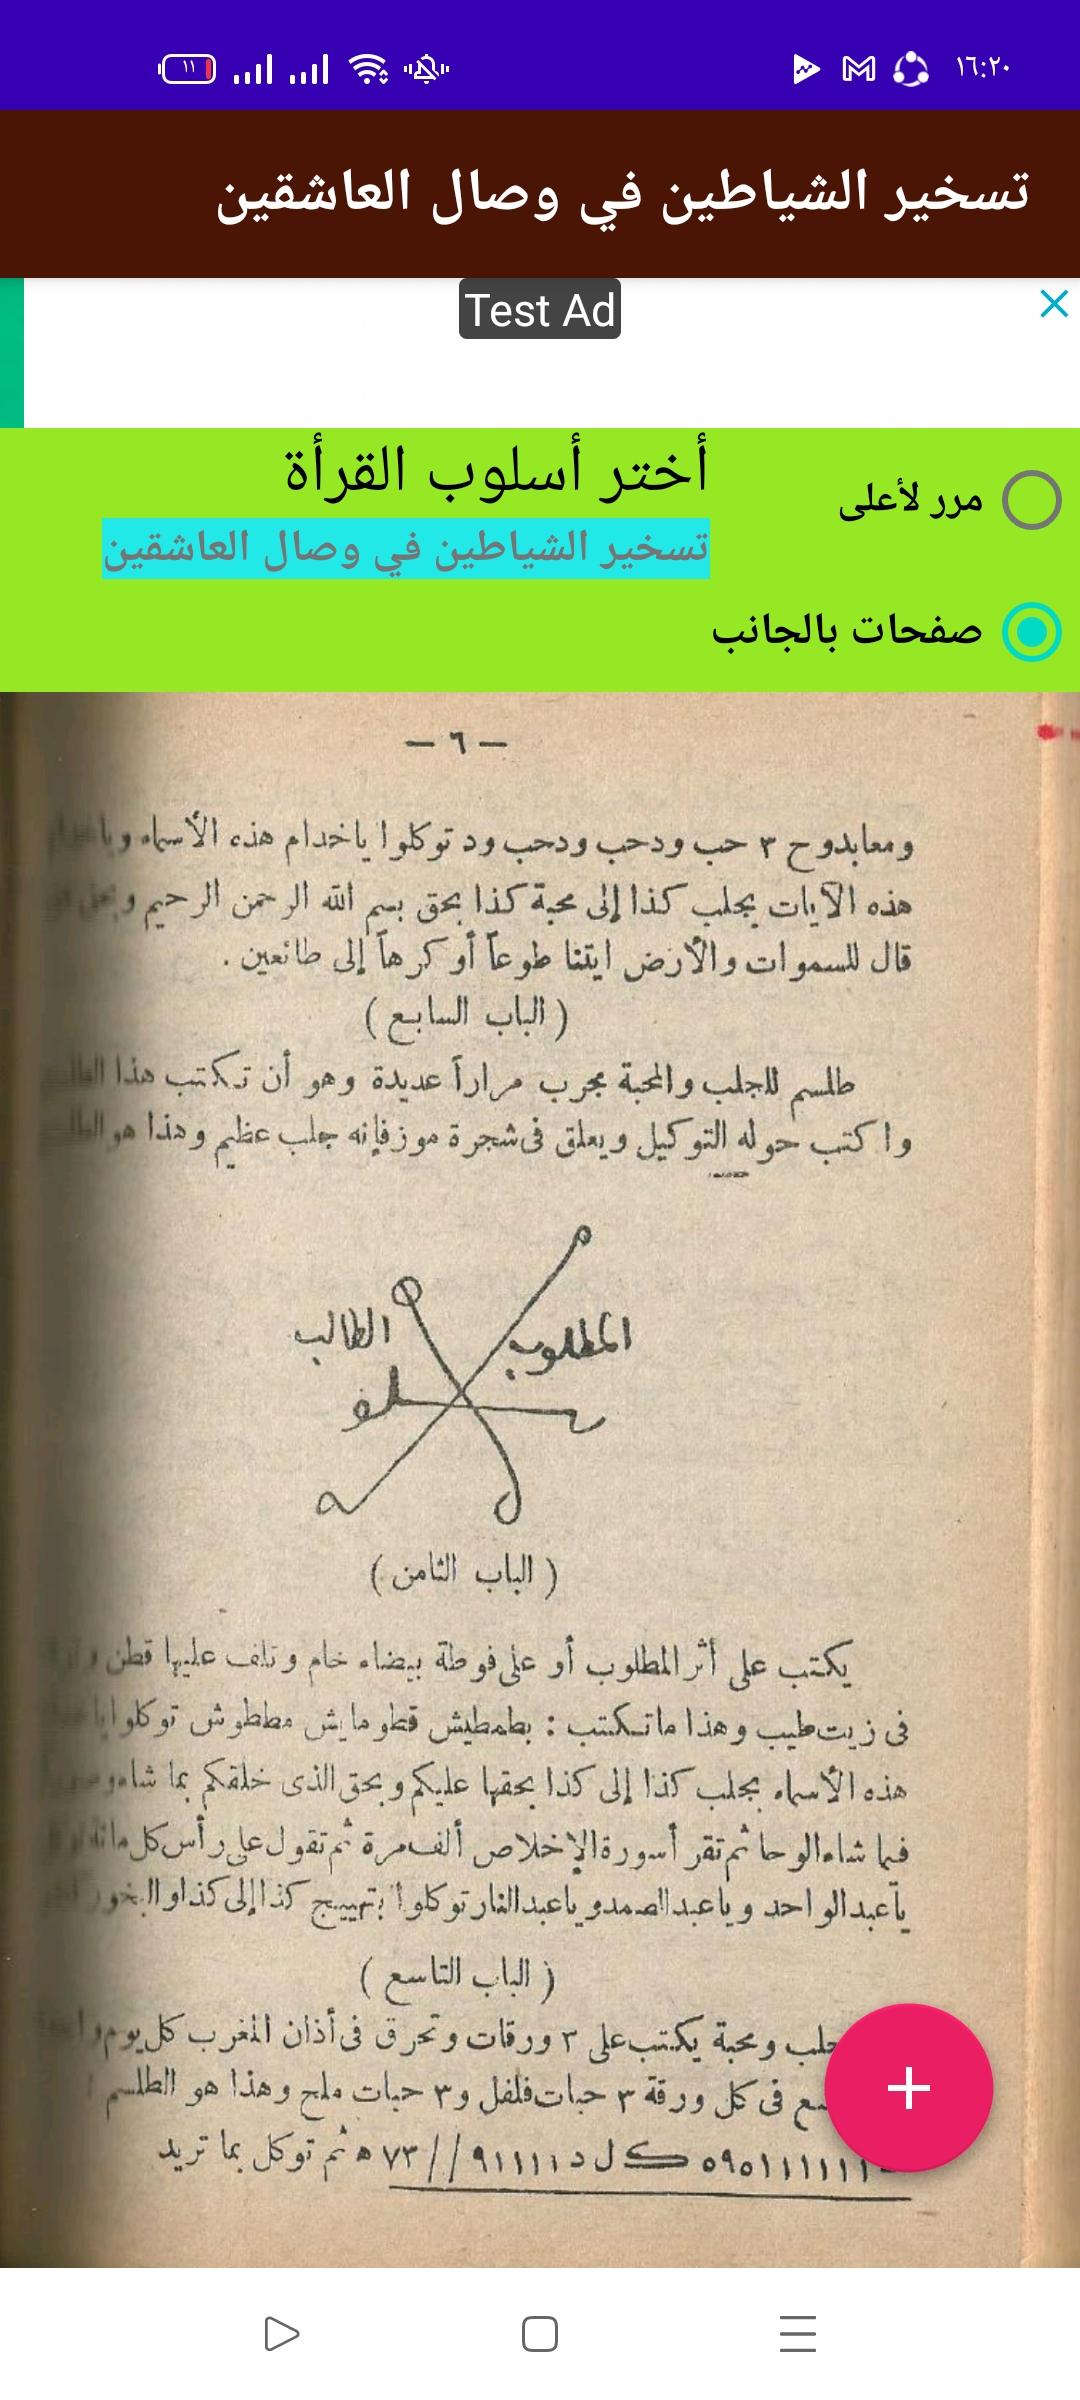 ١١
١٦:٢٠
تسخير الشياطين في وصال العاشقين
Test Ad
أختر أسلوب القرأة
تسخير الشياطين في وصال العاشقين
مرر لأعلى
صفحات بالجانب
— ٦ —
ومعابدوح ٣ حب ودحب ودحب ود توكلوا ياخدام هذه الأسماء
هذه الآيات بجلب كذا إلى محبة كذا بحق بسم الله الرحمن الرحيم
قال للسموات والأرض ايتنا طوعاً أو كرهاً إلى طائعين .
( الباب السابع )
طلسم للجلب والمحبة مجرب مراراً عديدة وهو أن تكتب هذا
واكتب حوله التوكيل ويعلق فى شجرة موز فإنه جلب عظيم وهذا هو
الطالب
المطلوب
( الباب الثامن )
يكتب على أثر المطلوب أو على فوطة بيضاء خام وتلف عليها قطن
فى زيت طيب وهذا ما تكتب : بطمطيش قطومايش مططوش توكلوا
هذه الأسماء بجلب كذا إلى كذا بحقها عليكم وبحق الذى خلقكم بما شاء
فيما شاء الوحا ثم تقرأ سورة الإخلاص ألف مرة ثم تقول على رأس كل
يا عبد الواحد ويا عبد الصمد ويا عبد النار توكلوا بتهييج كذا إلى كذا والبخور
( الباب التاسع )
جلب ومحبة يكتب على ٣ ورقات وتحرق فى أذان المغرب كل يوم
فى كل ورقة ٣ حبات فلفل و٣ حبات ملح وهذا هو الطلسم
ثم توكل بما تريد